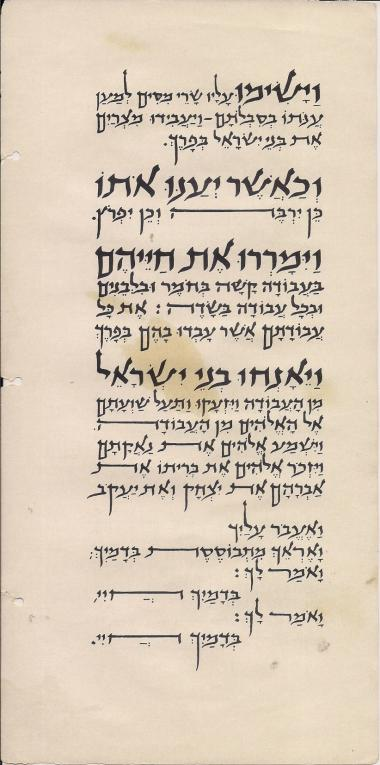 וַיָּשִׂימוּ עָלָיו שָׂרֵי מִסִּים לְמַעַן
עַנֹּתוֹ בְּסִבְלֹתָם-וַיַּעֲבִידוּ מִצְרַיִם
אֶת בְּנֵי יִשְׂרָאֵל בְּפָרֶךְ.
וְכַאֲשֶׁר יְעַנּוּ אֹתוֹ
כֵּן יִרְבֶּה וְכֵן יִפְרֹץ.
וַיְמָרְרוּ אֶת חַיֵּיהֶם
בַּעֲבוֹדָה קָשָׁה בְּחֹמֶר וּבִלְבֵנִים
וּבְכָל עֲבוֹדָה בַּשָּׂדֶה: אֵת כָּל
עֲבוֹדָתָם אֲשֶׁר עָבְדוּ בָהֶם בְּפָרֶךְ
וַיֵּאָנְחוּ בְנֵי יִשְׂרָאֵל
מִן הָעֲבוֹדָה וַיִּזְעָקוּ וַתַּעַל שַׁוְעָתָם
אֶל הָאֱלֹהִים מִן הָעֲבוֹדָה.
וַיִּשְׁמַע אֱלֹהִים אֶת נַאֲקָתָם
וַיִּזְכֹּר אֱלֹהִים אֶת בְּרִיתוֹ אֶת
אַבְרָהָם אֶת יִצְחָק וְאֶת יַעֲקֹב
וָאֶעֱבֹר עָלַיִךְ
וָאֶרְאֵךְ מִתְבּוֹסֶסֶת בְּדָמָיִךְ;
וָאֹמַר לָךְ:
בְּדָמַיִךְ חֲיִי,
וָאֹמַר לָךְ:
בְּדָמַיִךְ חֲיִי.